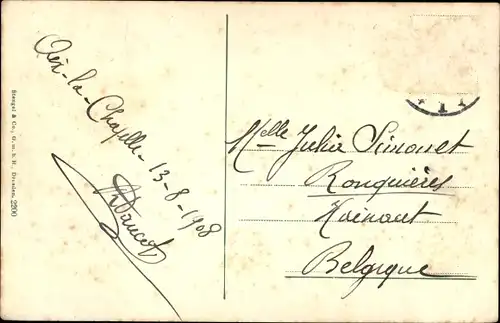 Aix-la-Chapelle - 13-8-1908
Stengel & Co., G. m. b. H., Dresden. 2200
Mlle Julia Simonet
Ronquières
Hainaut
Belgique